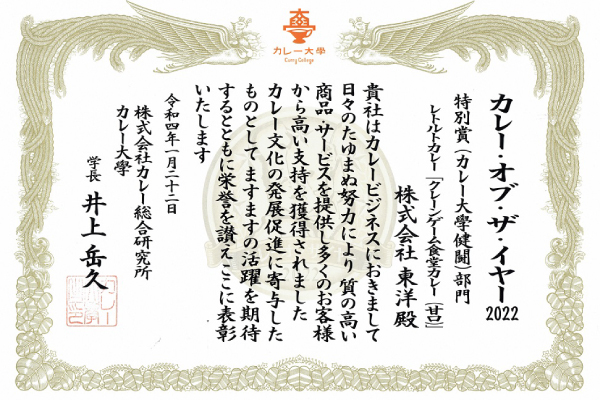 カレー大學
Curry College
カレー・オブ・ザ・イヤー2022
特別賞(カレー大學健闘)部門
レトルトカレー「クレーンゲーム食堂カレー(甘口)」
株式会社 東洋殿
貴社はカレービジネスにおきまして
日々のたゆまぬ努力により質の高い
商品・サービスを提供し多くのお客様
から高い支持を獲得されました
カレー文化の発展促進に寄与した
ものとして ますますの活躍を期待
するとともに栄誉を讃え ここに表彰
いたします
令和四年一月二十二日
株式会社カレー総合研究所
カレー大學
学長 井上 岳久